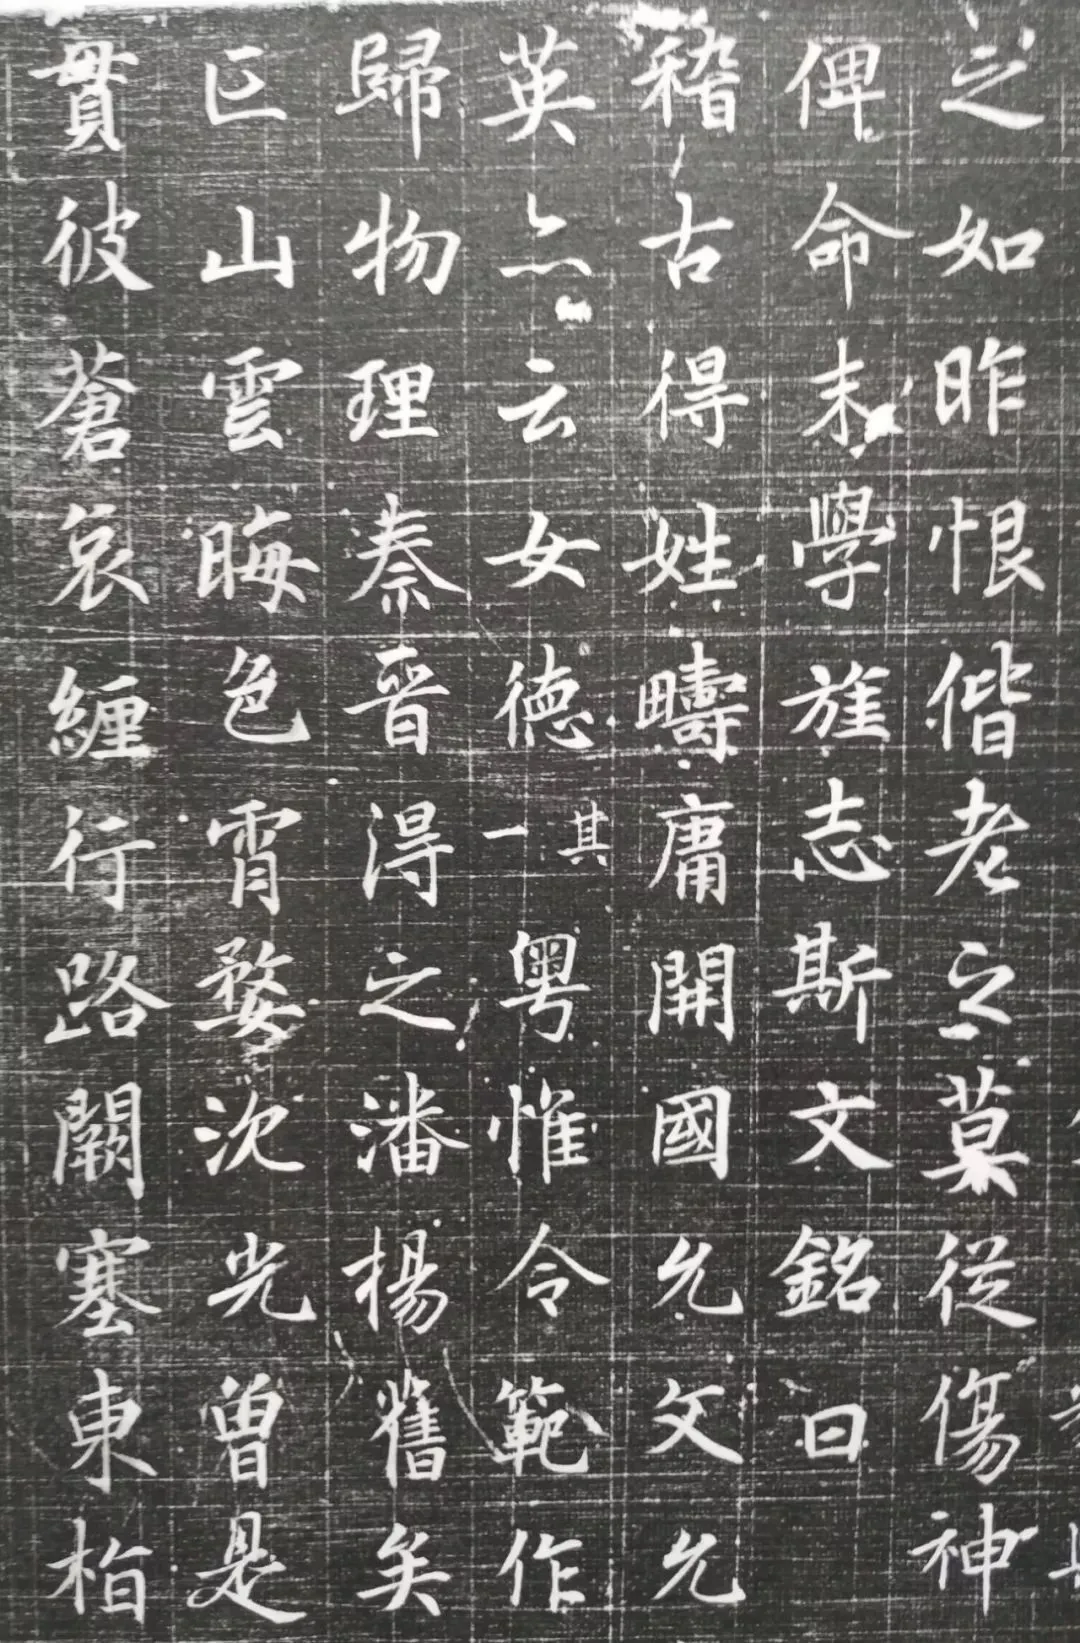 之如昨恨偕老之莫從傷神
俾命末學旌志斯文銘曰
稽古得姓疇庸開國允文允
英亦云女德其一粤惟令範作
歸物理秦晉得之潘楊舊矣
巫山雲晦色宵婺沈光曾是
貫彼蒼哀纏行路闕塞東栢